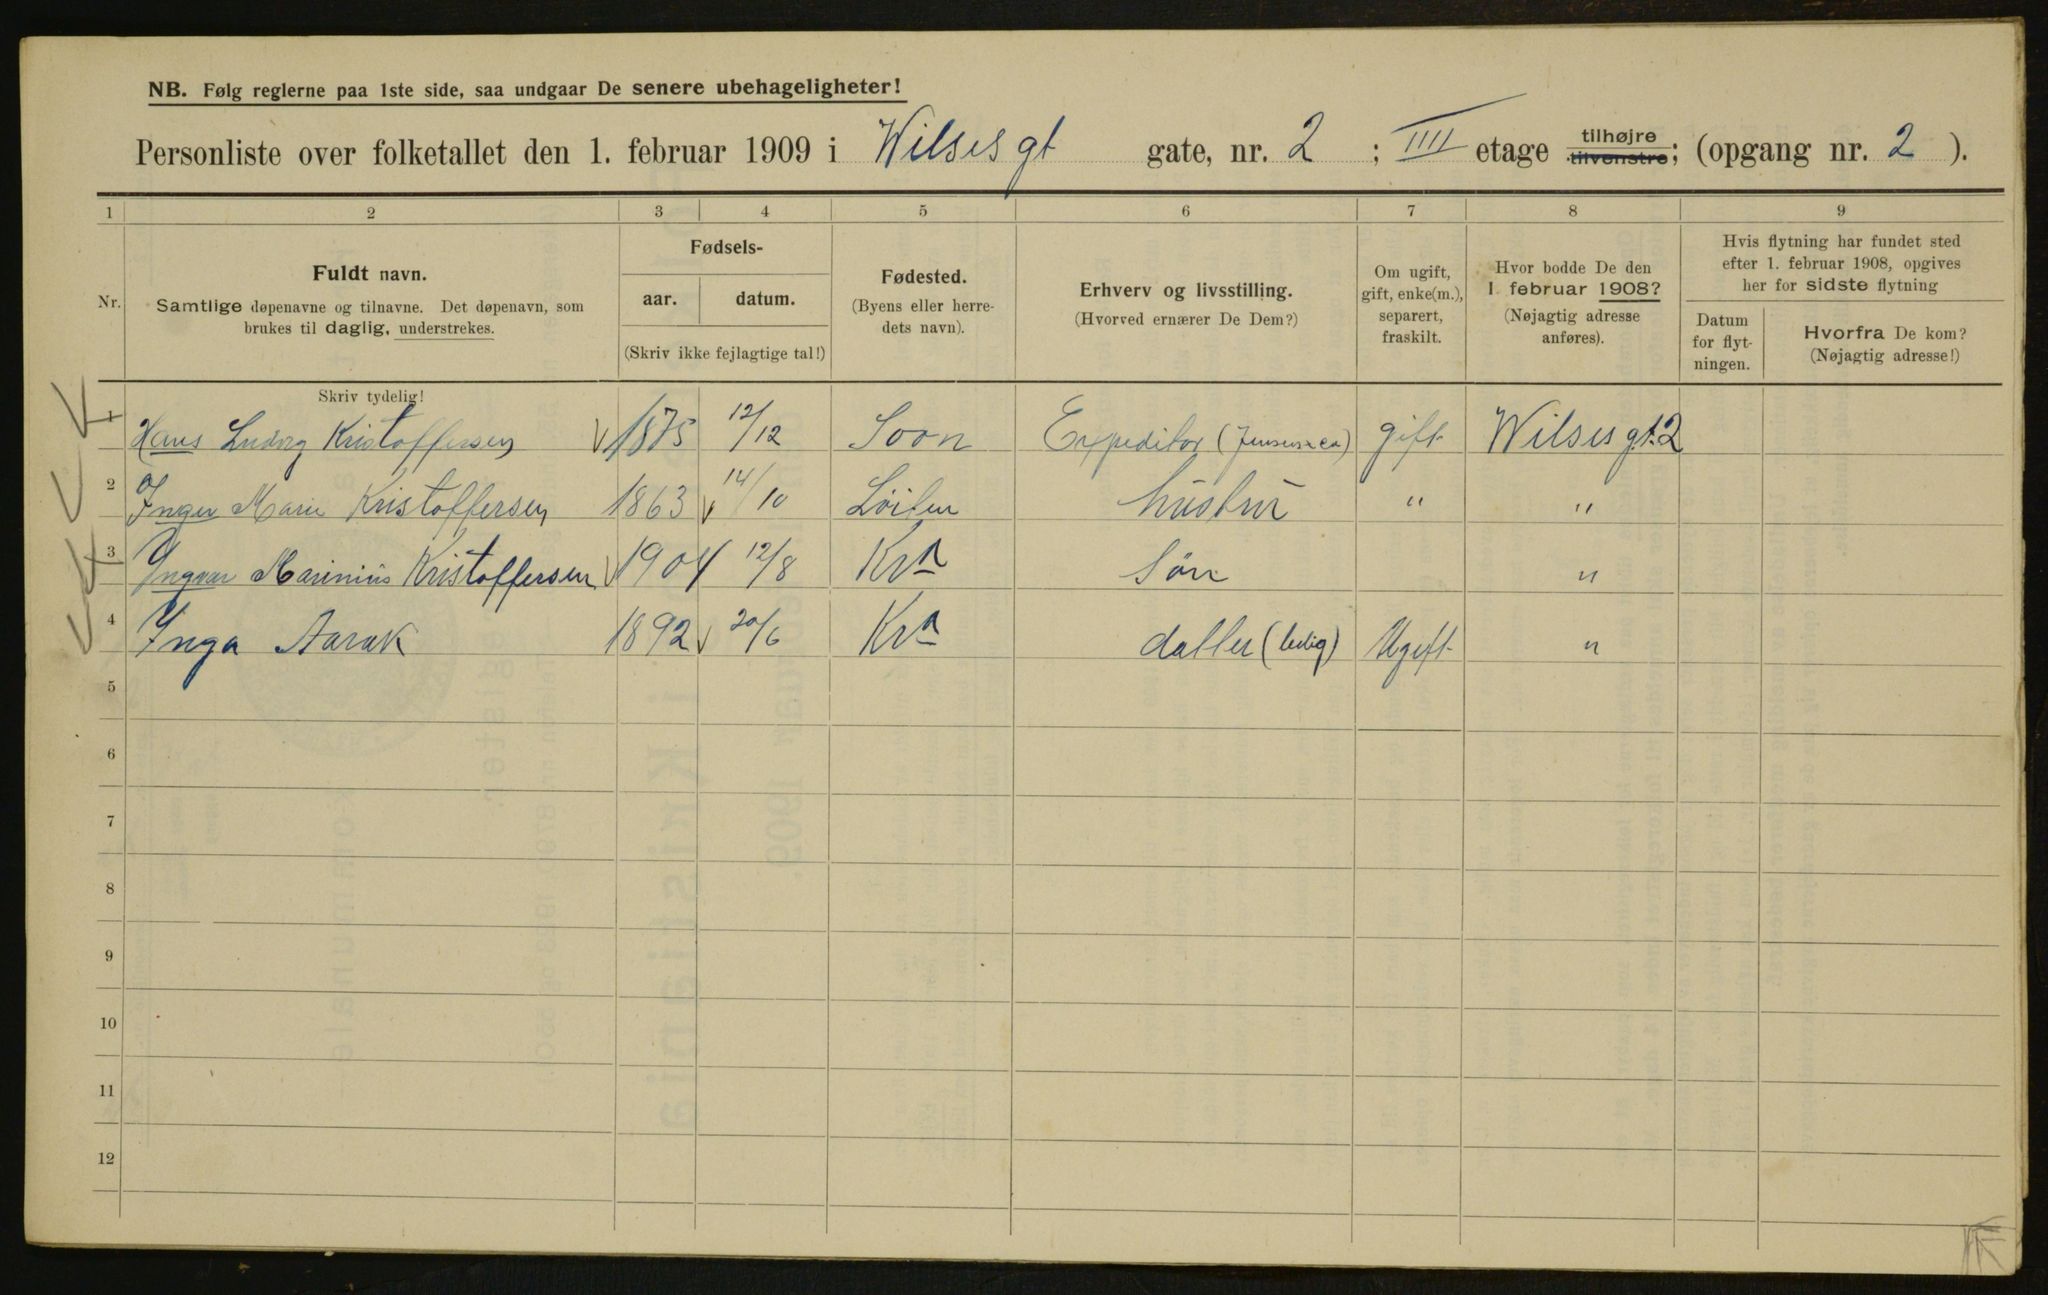 NB. Følg reglerne paa 1ste side, saa undgaar De senere ubehageligheter!
Personliste over folketallet den 1. februar 1909 i Wilses gt gate, nr. 2 ; IIII etage tilhøjre tilvenstre; (opgang nr. 2 ).
1 2 3 4 5 6 7 8 9
Nr.
Fuldt navn.
Samtlige døpenavne og tilnavne. Det døpenavn, som
brukes til daglig, understrekes.
Fødsels-
aar. datum.
(Skriv ikke fejlagtige tal!)
Fødested.
(Byens eller herre-
dets navn).
Erhverv og livsstilling.
(Hvorved ernærer De Dem?)
Om ugift,
gift, enke(m.),
separert,
fraskilt.
Hvor bodde De den
1 februar 1908?
(Nøjagtig adresse
anføres).
Hvis flytning har fundet sted
efter 1. februar 1908, opgives
her for sidste flytning
Datum
for flyt-
ningen.
Hvorfra De kom?
(Nøjagtig adresse!)
Skriv tydelig!
1 Hans Ludvig Kristoffersen 1875 12/12 Soon Expeditor (Jensen & co) gift Wilses gt. 2
2 Inger Marie Kristoffersen 1863 14/10 Löiten hustru " "
3 Yngvar Marinius Kristoffersen 1904 12/8 Kra Sön "
4 Ynga Aarak 1892 20/6 Kra datter (ledig) Ugift "
5
6
7
8
9
10
11
12